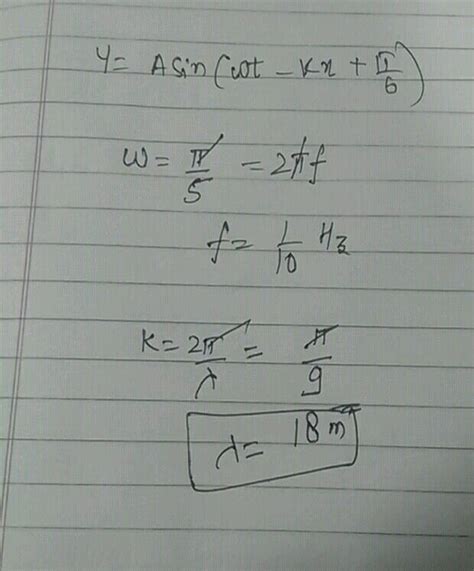 y = A sin(ωt - Kx + π/6)
ω = π/5 = 2πf
f = 1/10 Hz
K = 2π/λ = π/9
λ = 18 m